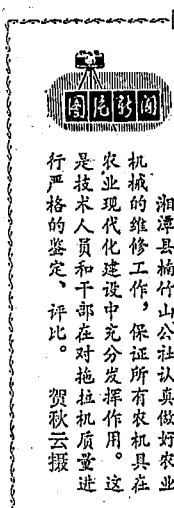 图片新闻
湘潭县楠竹山公社认真做好农业
机械的维修工作，保证所有农机具在
农业现代化建设中充分发挥作用。这
是技术人员和干部在对拖拉机质量进
行严格的鉴定、评比。 贺秋云摄